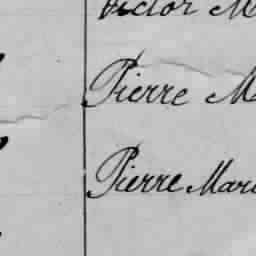 Victor M
Pierre M
Pierre Mari